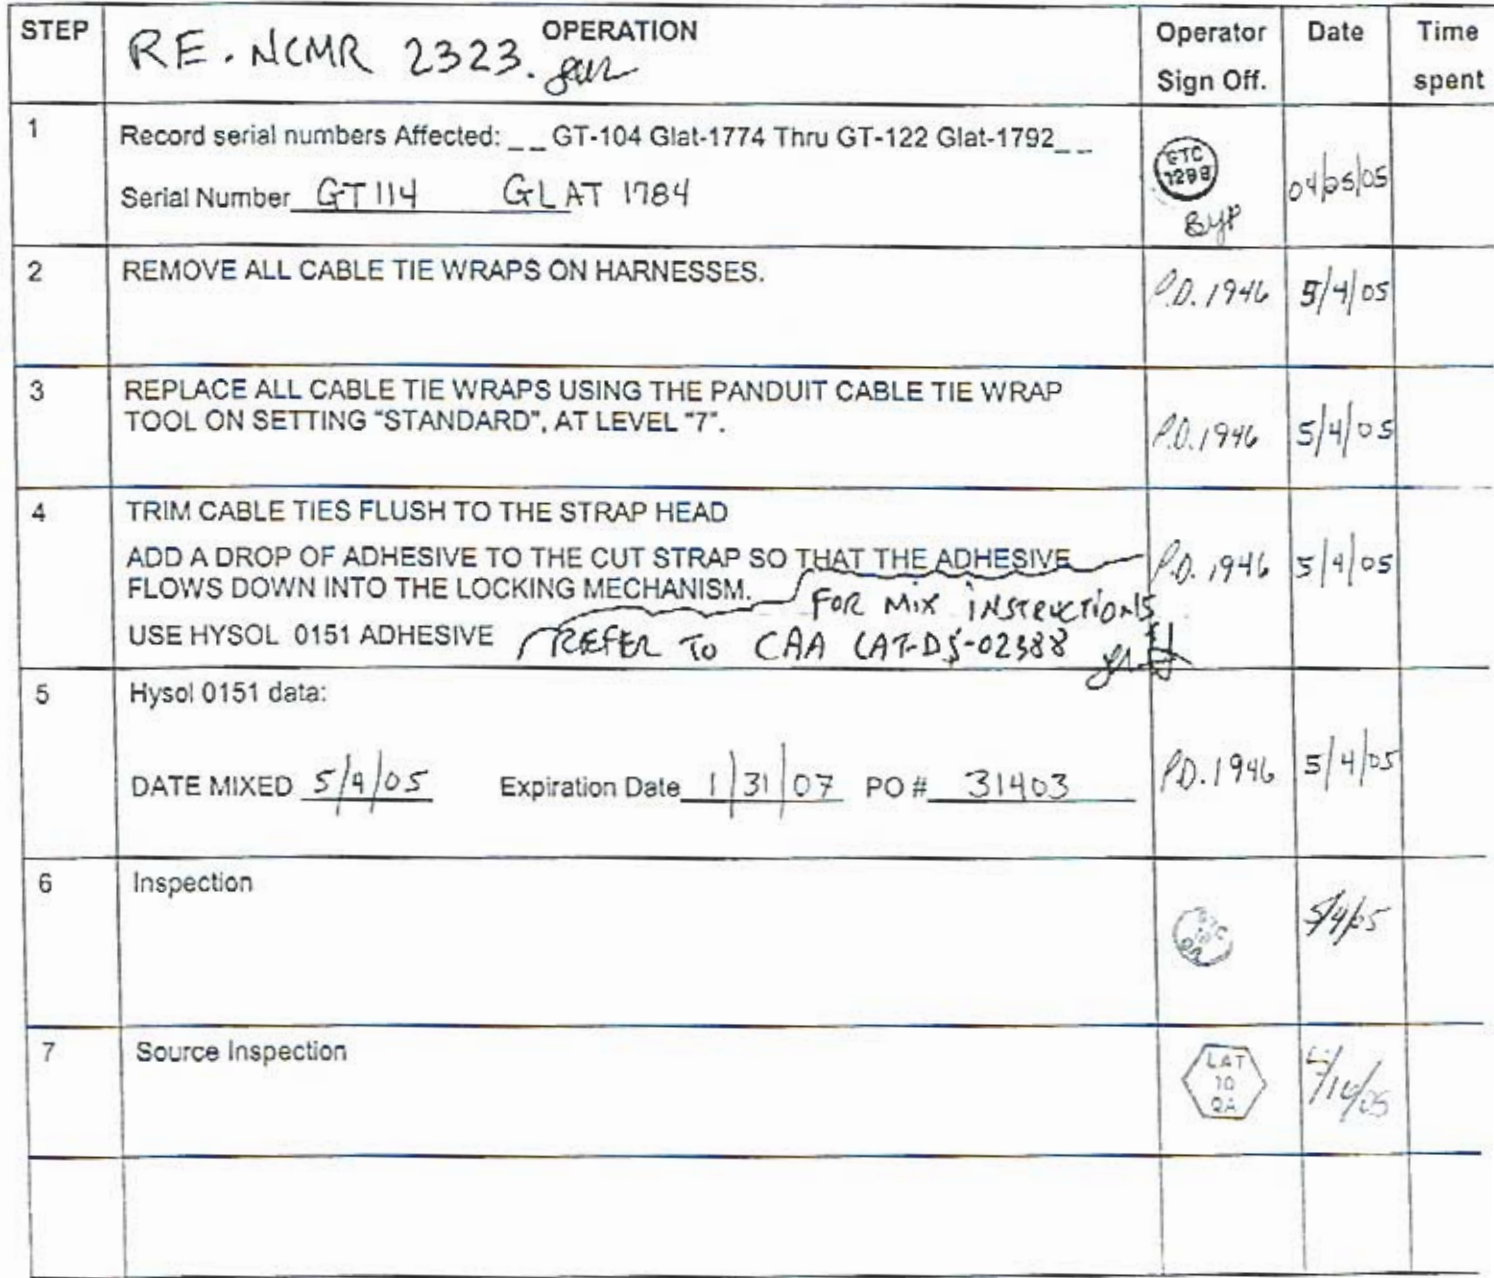 STEP OPERATION Operator Sign Off. Date Time spent
RE. NCMR 2323.
1 Record serial numbers Affected: _ _ GT-104 Glat-1774 Thru GT-122 Glat-1792_ _
Serial Number GT 114 GLAT 1784
GTC 1298
BYP
04/25/05
2 REMOVE ALL CABLE TIE WRAPS ON HARNESSES. P.D. 1946 5/4/05
3 REPLACE ALL CABLE TIE WRAPS USING THE PANDUIT CABLE TIE WRAP
TOOL ON SETTING "STANDARD", AT LEVEL "7". P.D. 1946 5/4/05
4 TRIM CABLE TIES FLUSH TO THE STRAP HEAD
ADD A DROP OF ADHESIVE TO THE CUT STRAP SO THAT THE ADHESIVE P.D. 1946 5/4/05
FLOWS DOWN INTO THE LOCKING MECHANISM.
FOR MIX INSTRUCTIONS
USE HYSOL 0151 ADHESIVE REFER TO CAA LAT-DS-02388
5 Hysol 0151 data:
DATE MIXED 5/4/05 Expiration Date 1/31/07 PO # 31403 P.D. 1946 5/4/05
6 Inspection GTC 10 QA 5/4/05
7 Source Inspection LAT 10 QA